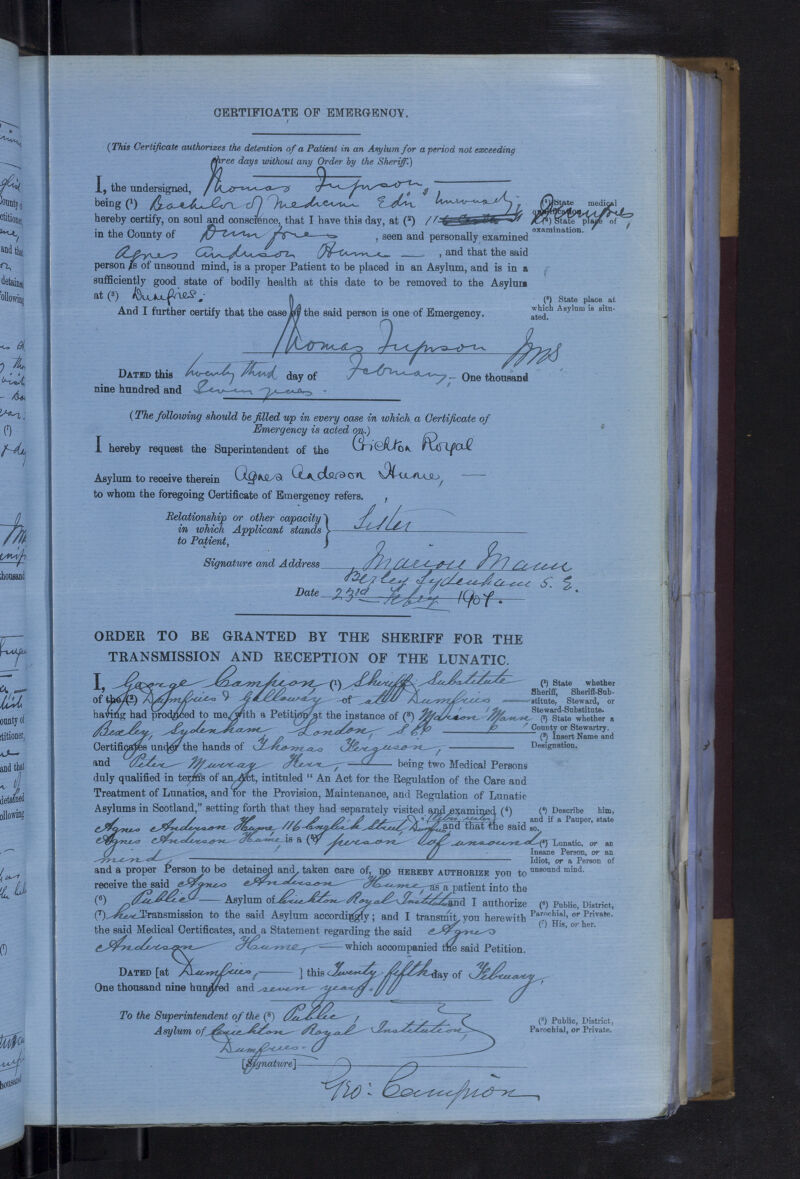 CERTIFICATE OF EMERGENCY.
(This Certificate authorizes the detention of a Patient in an Asylum for a period not exceeding
three days without any Order by the Sheriff.)
I, the undersigned, Thomas Ferguson,
being (¹) Bachelor of Medicine Edin University,
(¹) State medical
qualification.
hereby certify, on soul and conscience, that I have this day, at (²) 116 Dumfries,
(²) State place of
examination.
in the County of Dumfries, seen and personally examined
Agnes Anderson Hume, and that the said
person is of unsound mind, is a proper Patient to be placed in an Asylum, and is in a
sufficiently good state of bodily health at this date to be removed to the Asylum
at (³) Dumfries.
(³) State place at
which Asylum is situ-
ated.
And I further certify that the case of the said person is one of Emergency.
Thomas Ferguson
DATED this twenty third day of February, One thousand
nine hundred and Seven years.
(The following should be filled up in every case in which a Certificate of
Emergency is acted on.)
I hereby request the Superintendent of the Crichton Royal
Asylum to receive therein Agnes Anderson Hume,
to whom the foregoing Certificate of Emergency refers.
Relationship or other capacity
in which Applicant stands
to Patient,
Sister
Signature and Address Marion Mann
Bexley Sydenham S. E.
Date 23rd Feby 1907.
ORDER TO BE GRANTED BY THE SHERIFF FOR THE
TRANSMISSION AND RECEPTION OF THE LUNATIC.
I, George Campion (¹) Sheriff Substitute
of the (²) Dumfries & Galloway at Dumfries
having had produced to me, with a Petition at the instance of (³) Marion Mann,
Bexley, Sydenham, London, S.E.
Certificates under the hands of Thomas Ferguson,
and Peter Murray Kerr, being two Medical Persons
(¹) State whether
Sheriff, Sheriff-Sub-
stitute, Steward, or
Steward-Substitute.
(²) State whether a
County or Stewartry.
(³) Insert Name and
Designation.
duly qualified in terms of an Act, intituled "An Act for the Regulation of the Care and
Treatment of Lunatics, and for the Provision, Maintenance, and Regulation of Lunatic
Asylums in Scotland," setting forth that they had separately visited and examined (⁴)
Agnes Anderson Hume, 116 English Street, Dumfries and that the said
Agnes Anderson Hume is a (⁵) person of unsound
mind,
(⁴) Describe him,
and if a Pauper, state
so.
(⁵) Lunatic, or an
Insane Person, or an
Idiot, or a Person of
unsound mind.
and a proper Person to be detained and taken care of, DO HEREBY AUTHORIZE you to
receive the said Agnes Anderson Hume, as a patient into the
(⁶) Public Asylum of Crichton Royal Institution and I authorize
(⁷) her Transmission to the said Asylum accordingly; and I transmit you herewith
the said Medical Certificates, and a Statement regarding the said Agnes
Anderson Hume, which accompanied the said Petition.
(⁶) Public, District,
Parochial, or Private.
(⁷) His, or her.
DATED [at Dumfries, ] this Twenty fifth day of February,
One thousand nine hundred and seven years.
To the Superintendent of the (⁸) Public
Asylum of Crichton Royal Institution,
Dumfries.
(⁸) Public, District,
Parochial, or Private.
[Signature]
Geo: Campion